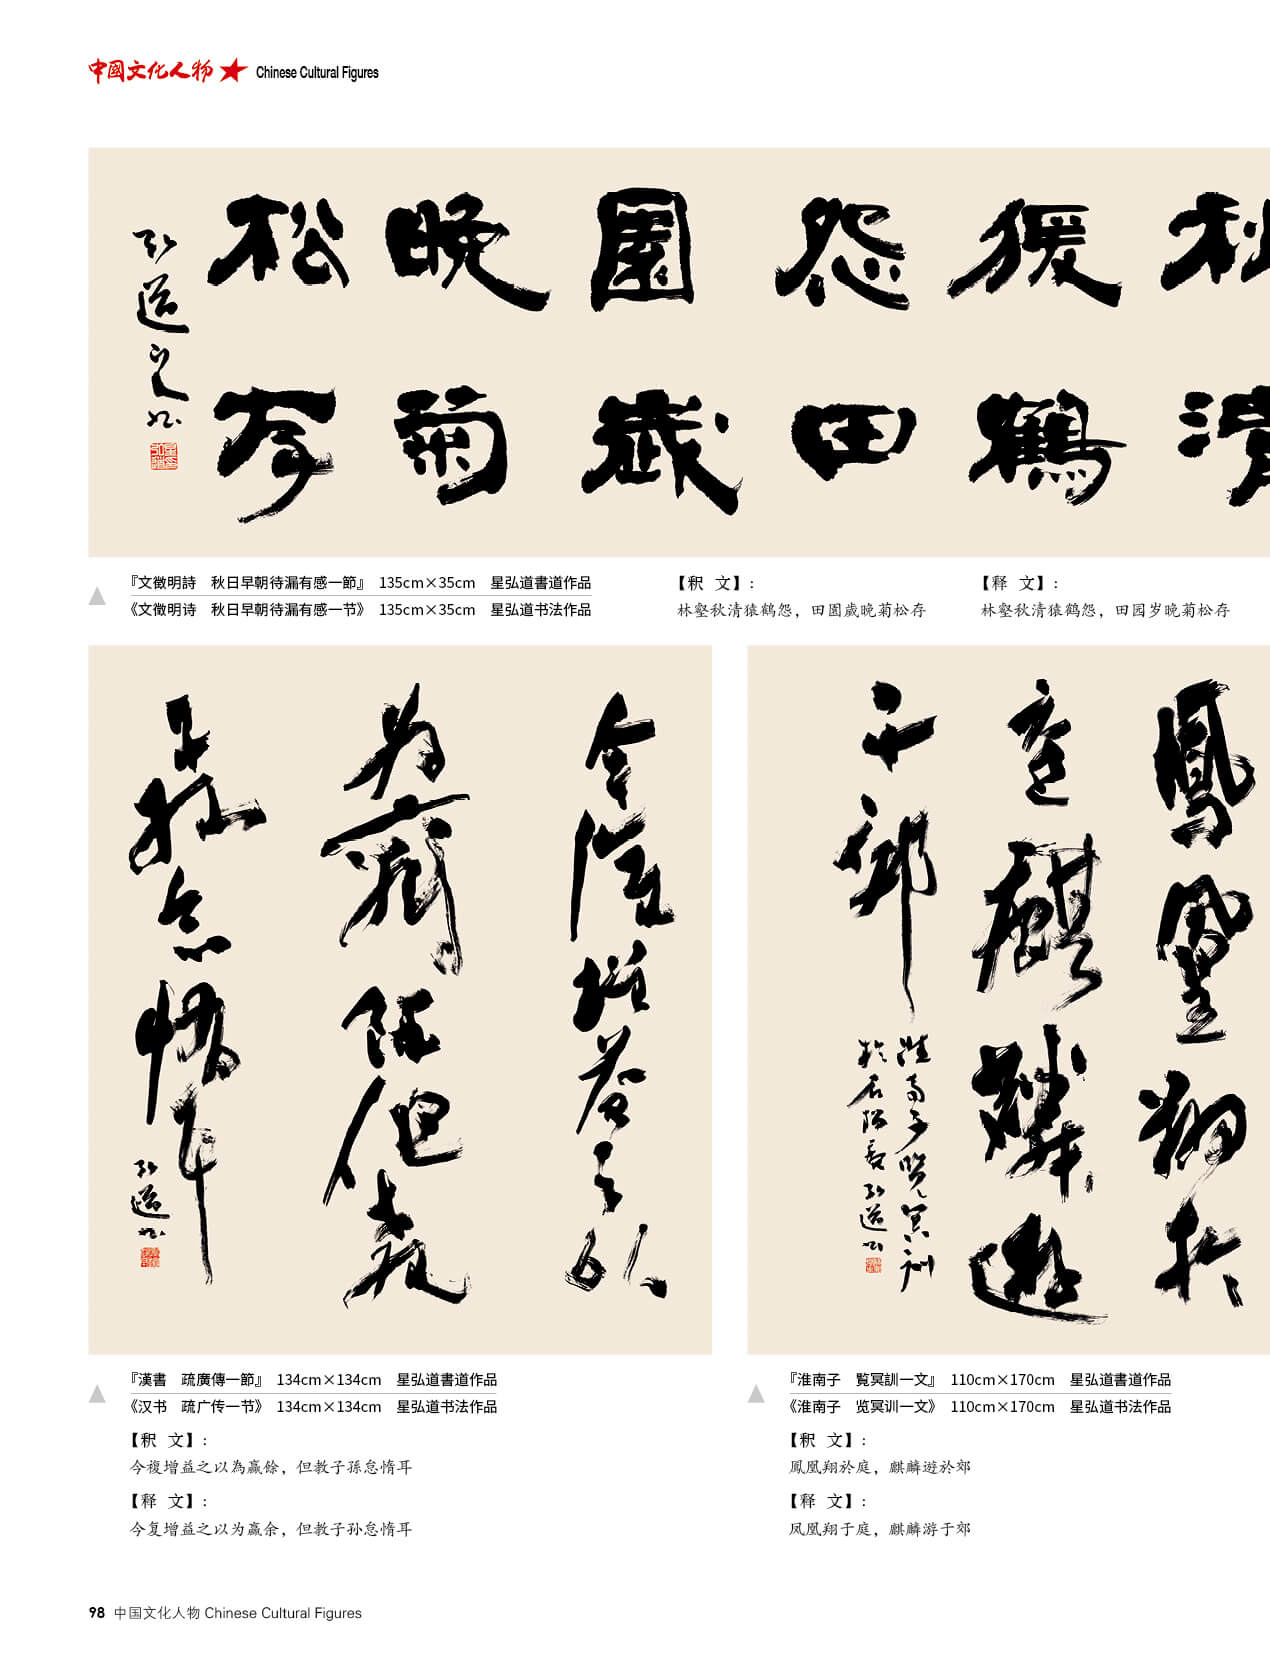 中國文化人物 Chinese Cultural Figures
秋猨怨園晚松
清鶴田歲菊存
弘道之印
『文徵明詩　秋日早朝待漏有感一節』 135cm×35cm　星弘道書道作品
《文徵明诗　秋日早朝待漏有感一节》 135cm×35cm　星弘道书法作品
【釈 文】:
林壑秋清猿鹤怨，田園歲晚菊松存
【释 文】:
林壑秋清猿鹤怨，田园岁晚菊松存
今複增益之以
為贏餘但教
子孫怠惰耳
弘道
『漢書　疏廣傳一節』 134cm×134cm　星弘道書道作品
《汉书　疏广传一节》 134cm×134cm　星弘道书法作品
【釈 文】:
今複增益之以為贏餘，但教子孫怠惰耳
【释 文】:
今复增益之以为赢余，但教子孙怠惰耳
鳳凰翔於
庭麒麟遊
於郊
淮南子覧冥訓
弘道
『淮南子　覧冥訓一文』 110cm×170cm　星弘道書道作品
《淮南子　览冥训一文》 110cm×170cm　星弘道书法作品
【釈 文】:
鳳凰翔於庭，麒麟遊於郊
【释 文】:
凤凰翔于庭，麒麟游于郊
98 中国文化人物 Chinese Cultural Figures